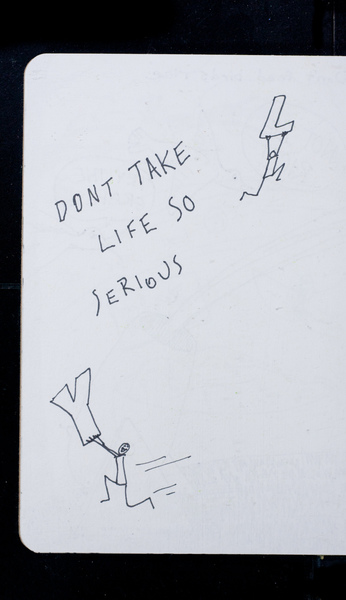 L
DONT TAKE
LIFE SO
SERIOUS
Y